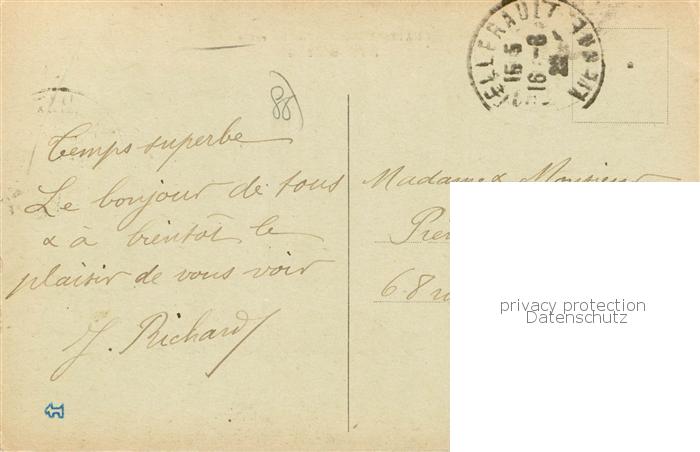 Temps superbe
Le bonjour de tous
& à bientôt le
plaisir de vous voir
J. Richard
88
ELLERAULT
VIENNE
15 5
16 -8
Madame & Monsieur
68
privacy protection
Datenschutz